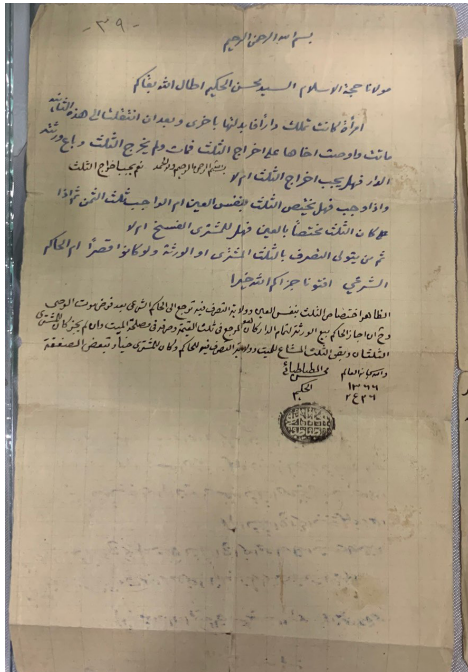 - ٣٩ -
بسم الله الرحمن الرحيم
مولانا حجة الاسلام السيد محسن الحكيم اطال الله بقاكم
امرأة كانت تملك داراً فابدلتها باخرى وبعد ان انتقلت الى هذه الثانية
ماتت واوصت اخاها على اخراج الثلث فمات ولم يخرج الثلث وباع ورثته
الدار فهل يجب اخراج الثلث ام لا بسم الله الرحمن الرحيم وله الحمد نعم يجب اخراج الثلث
واذا وجب فهل يختص الثلث بنفس العين ام الواجب ثلث الثمن ثم اذا
كان الثلث مختصاً بالعين فهل للمشتري الفسخ ام لا
ثم من يتولى التصرف بالثلث المشتري او الورثة ولو كانوا قصراً ام الحاكم
الشرعي افتونا جزاكم الله خيرا
الظاهر اختصاص الثلث بنفس العين وولاية التصرف فيه ترجع الى الحاكم الشرعي بعد فرض موت الوصي
وح ان اجاز الحاكم بيع الورثة لتمام الدار كان المرجع في ثلث القيمة وصرفه في مصلحة الميت وان لم يجز كان للمشتري
الثلثان وبقي الثلث المشاع للميت وولاية التصرف فيه للحاكم وكان للمشتري خيار تبعض الصفقة
والله سبحانه العالم محسن الطباطبائي
الحكيم ١٣٦٦